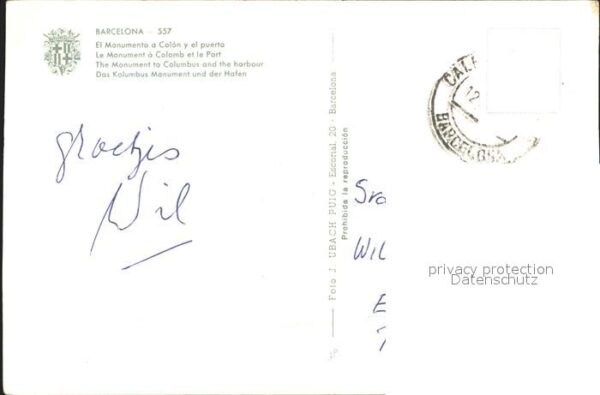 BARCELONA - 557
El Monumento a Colón y el puerto
Le Monument à Colomb et le Port
The Monument to Columbus and the harbour
Das Kolumbus Monument und der Hafen
groetjes
Wil
Foto J. UBACH PUIG - Escorial, 20 - Barcelona
Prohibida la reproducción
CAT
12
BARCELONA
Wil
E
privacy protection
Datenschutz